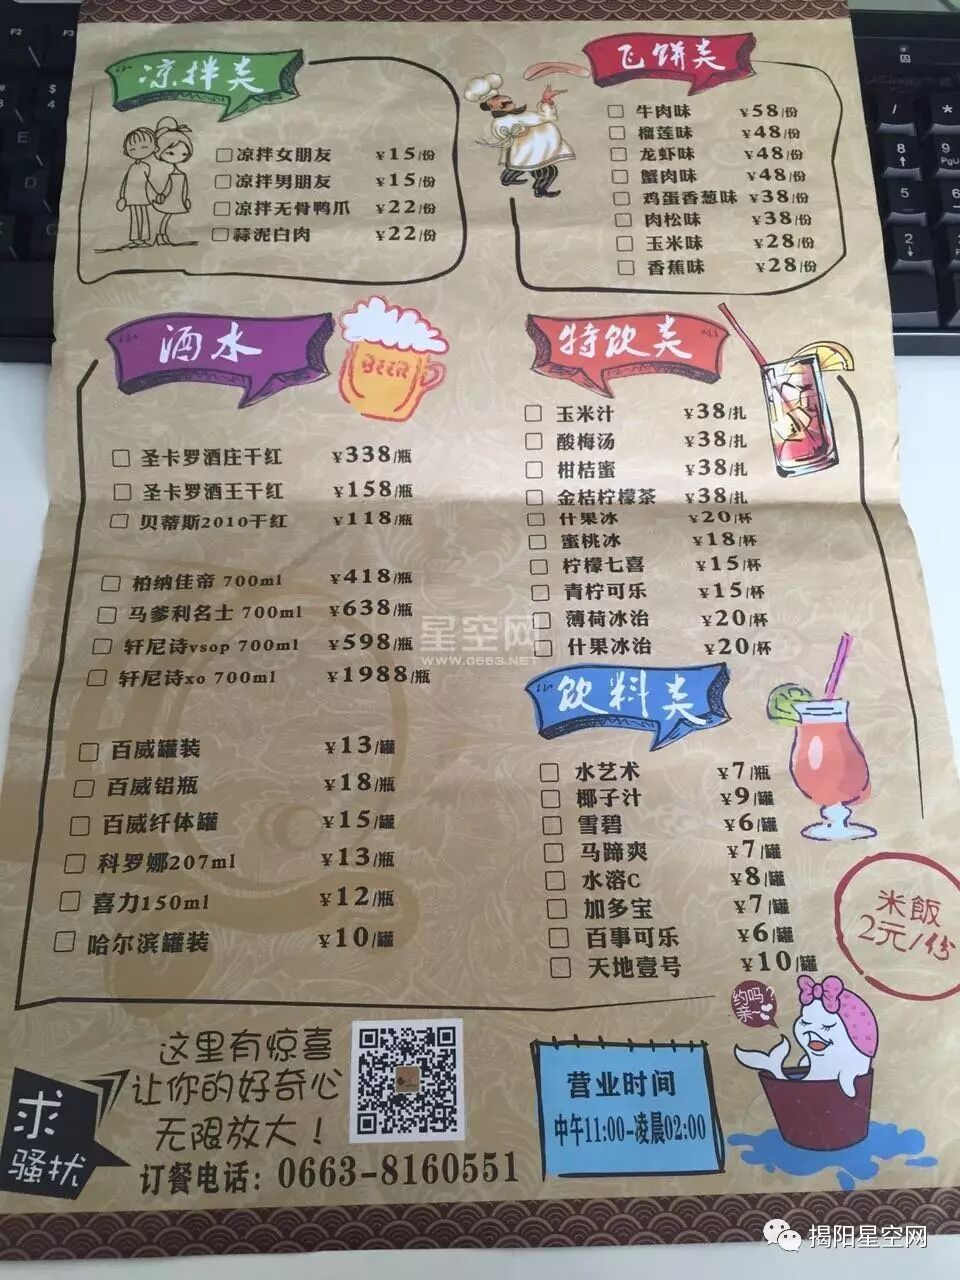 凉拌类
凉拌女朋友 ¥15/份
凉拌男朋友 ¥15/份
凉拌无骨鸭爪 ¥22/份
蒜泥白肉 ¥22/份
飞饼类
牛肉味 ¥58/份
榴莲味 ¥48/份
龙虾味 ¥48/份
蟹肉味 ¥48/份
鸡蛋香葱味 ¥38/份
肉松味 ¥38/份
玉米味 ¥28/份
香蕉味 ¥28/份
酒水
BEER
圣卡罗酒庄干红 ¥338/瓶
圣卡罗酒王干红 ¥158/瓶
贝蒂斯2010干红 ¥118/瓶
柏纳佳帝 700ml ¥418/瓶
马爹利名士 700ml ¥638/瓶
轩尼诗vsop 700ml ¥598/瓶
轩尼诗xo 700ml ¥1988/瓶
百威罐装 ¥13/罐
百威铝瓶 ¥18/瓶
百威纤体罐 ¥15/罐
科罗娜207ml ¥13/瓶
喜力150ml ¥12/瓶
哈尔滨罐装 ¥10/罐
特饮类
玉米汁 ¥38/扎
酸梅汤 ¥38/扎
柑桔蜜 ¥38/扎
金桔柠檬茶 ¥38/扎
什果冰 ¥20/杯
蜜桃冰 ¥18/杯
柠檬七喜 ¥15/杯
青柠可乐 ¥15/杯
薄荷冰治 ¥20/杯
什果冰治 ¥20/杯
饮料类
水艺术 ¥7/瓶
椰子汁 ¥9/罐
雪碧 ¥6/罐
马蹄爽 ¥7/罐
水溶C ¥8/罐
加多宝 ¥7/罐
百事可乐 ¥6/罐
天地壹号 ¥10/罐
米飯
2元/份
约吗?
亲~
星空网
WWW.0663.NET
求
骚扰
这里有惊喜
让你的好奇心
无限放大！
订餐电话：0663-8160551
营业时间
中午11:00-凌晨02:00
揭阳星空网